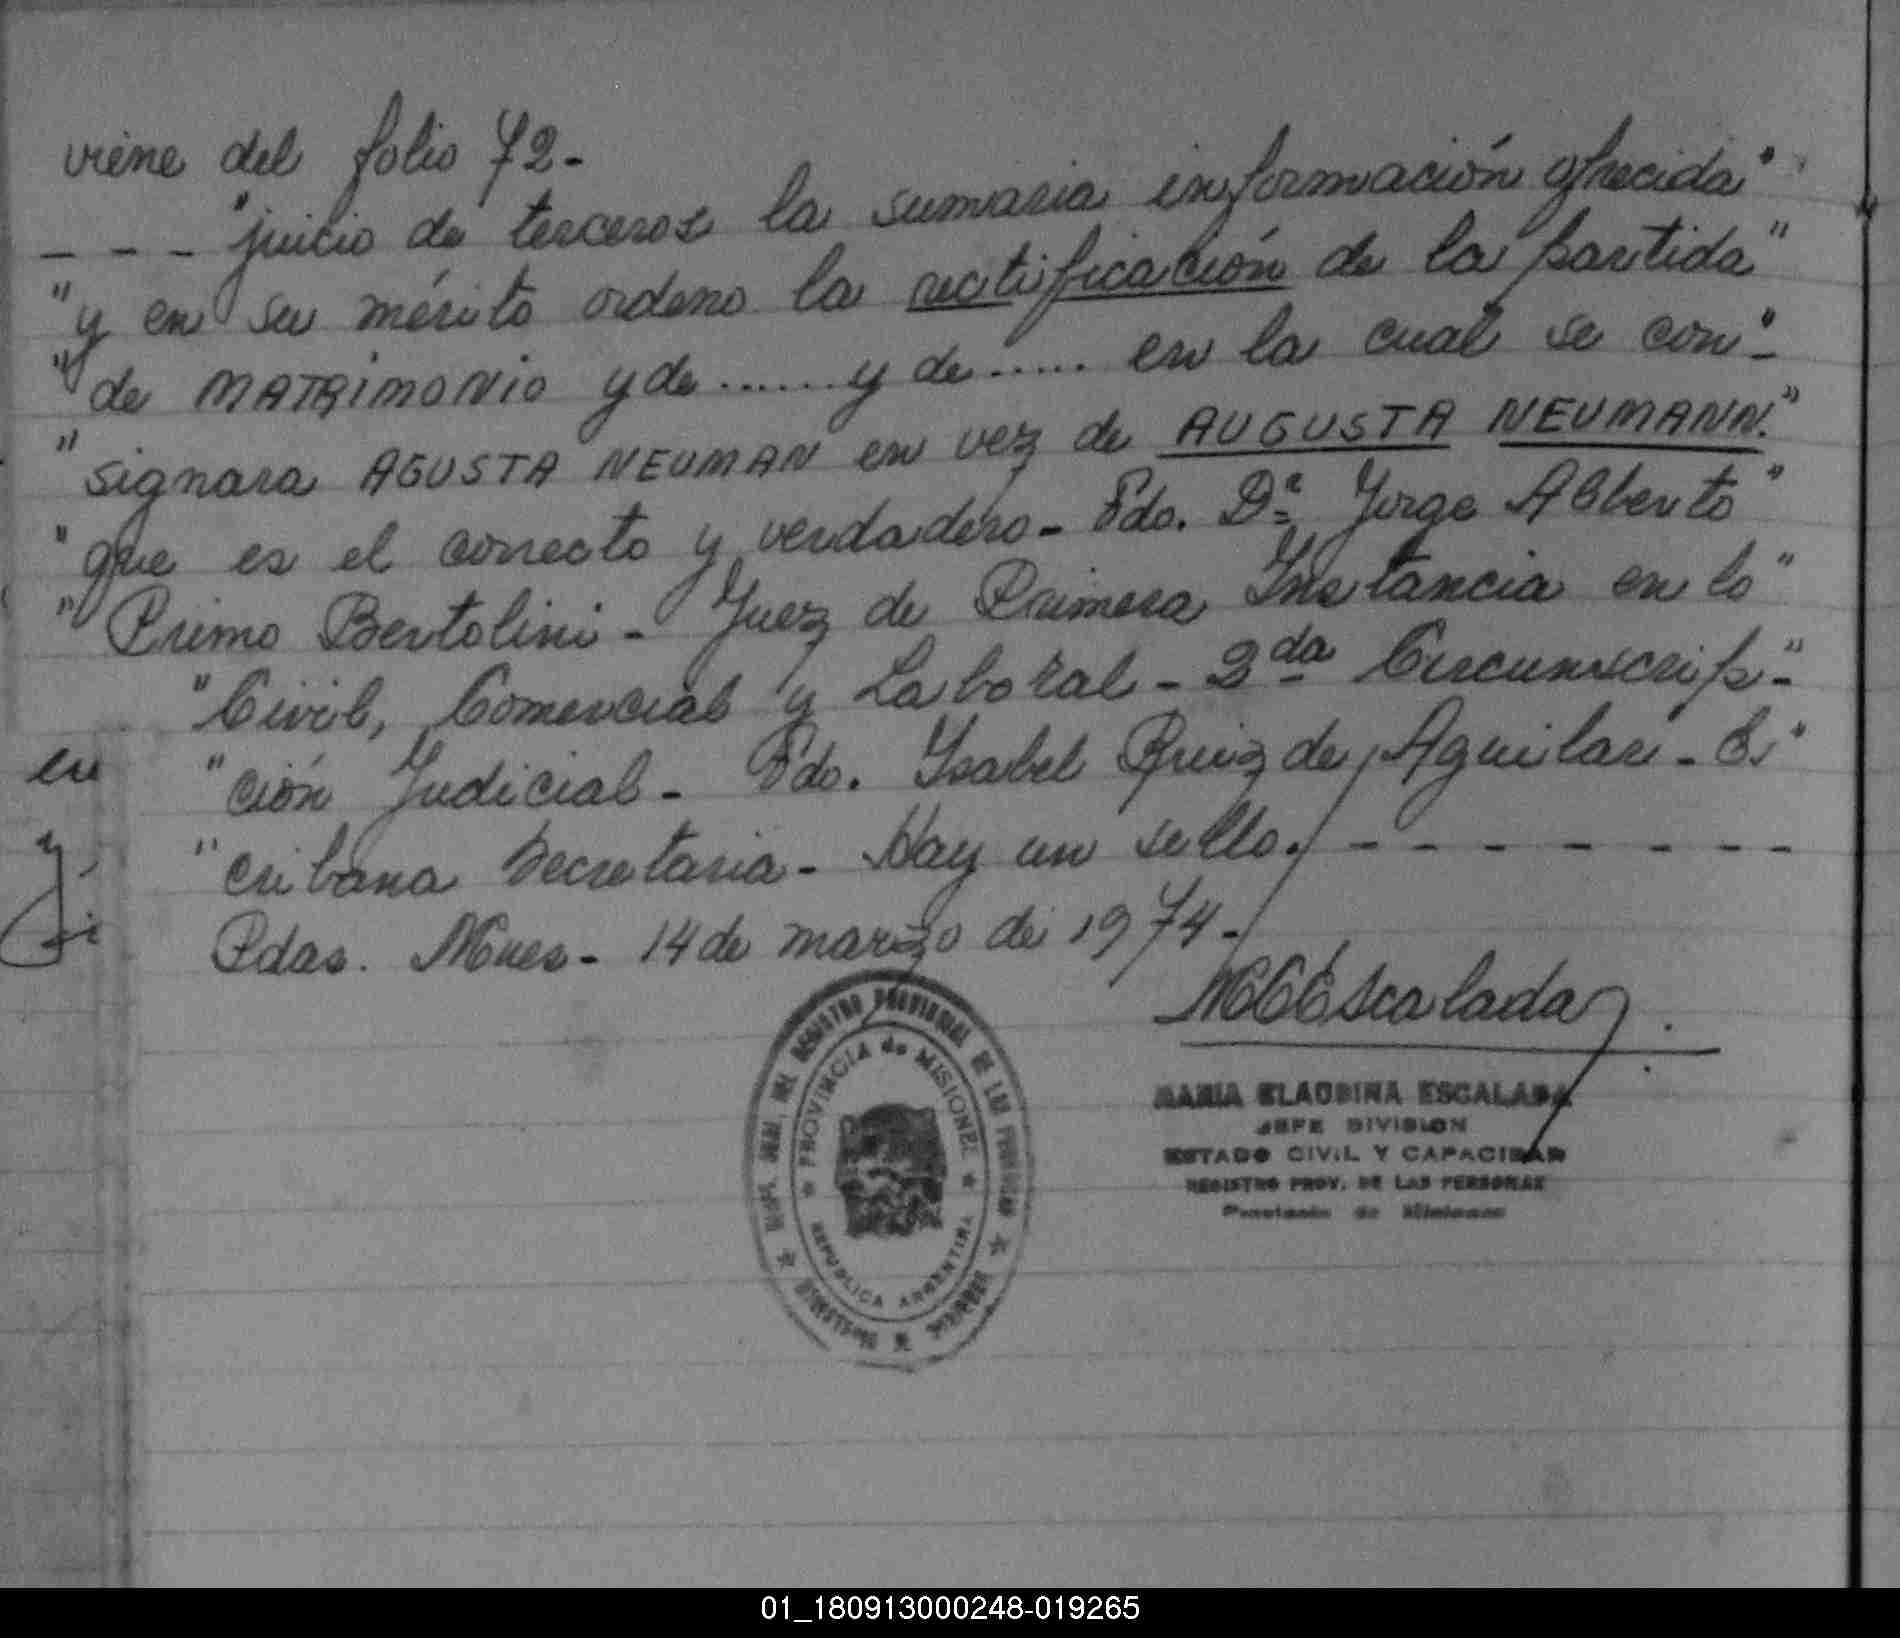 viene del folio 72-
- - - "juicio de terceros la sumaria información ofrecida"
"y en su mérito ordeno la rectificación de la partida"
"de MATRIMONIO y de ...... y de ..... en la cual se con-"
"signara AGUSTA NEUMAN en vez de AUGUSTA NEUMANN."
"que es el correcto y verdadero- Fdo. Dr. Jorge Alberto"
"Primo Bertolini- Juez de Primera Instancia en lo"
"Civil, Comercial y Laboral- 2da Circunscrip-"
"ción Judicial- Fdo. Isabel Ruiz de Aguilar- Es"
"cribana Secretaria- Hay un sello. - - - - - - - -
Pdas. Mnes- 14 de marzo de 1974-
MCEscalada
MARIA CLAUDINA ESCALADA
JEFE DIVISION
ESTADO CIVIL Y CAPACIDAD
REGISTRO PROV. DE LAS PERSONAS
Provincia de Misiones
REGISTRO PROVINCIAL DE LAS PERSONAS
PROVINCIA de MISIONES
REPUBLICA ARGENTINA
en
y
01_180913000248-019265